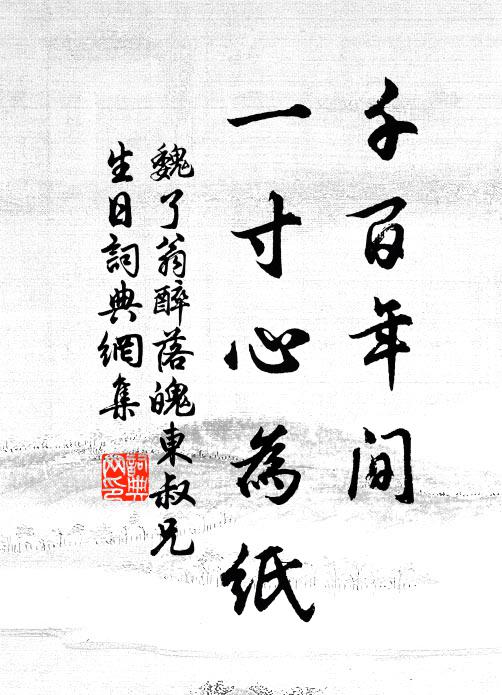 千百年间
一寸心為紙
魏了翁醉落魄東叔兄
生日詞典網集
詞典
网印